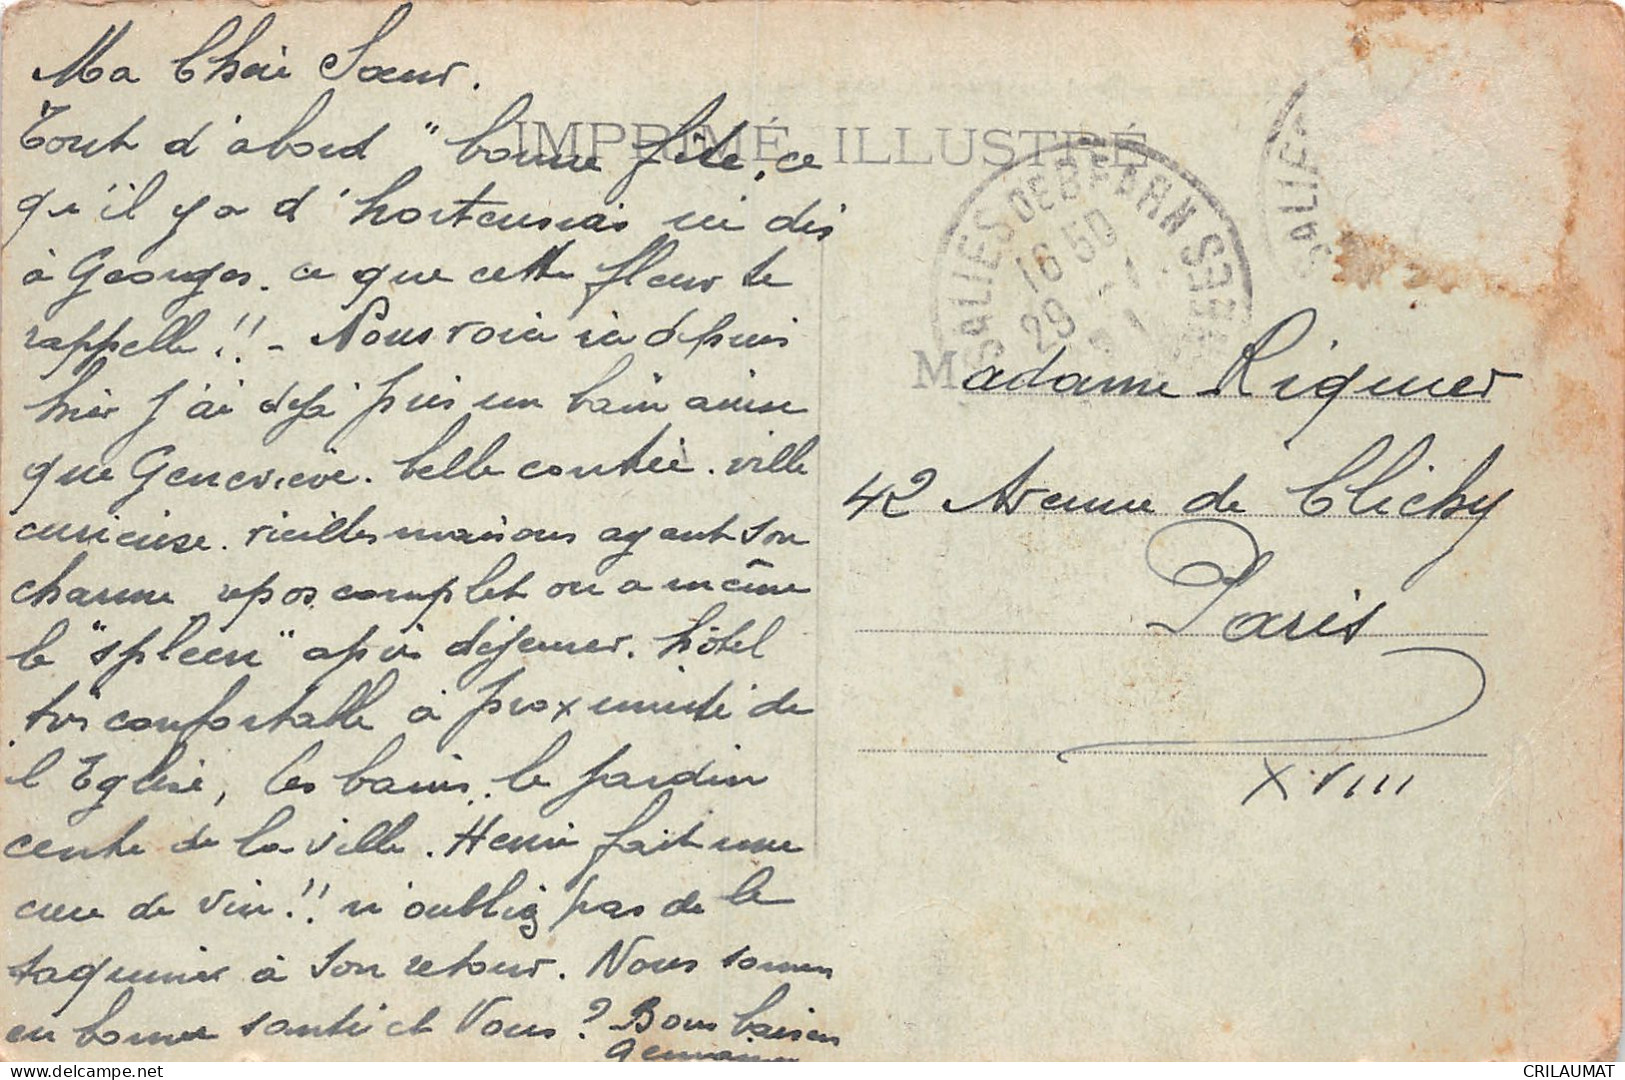 Ma Chère Soeur.
Tout d'abord "bonne fête, ce
qu'il y a d'hortensias ici dis
à Georges. ce que cette fleur te
rappelle!! - Nous voici ici depuis
hier j'ai déjà pris un bain ainsi
que Geneviève. belle contrée. ville
curieuse. vieilles maisons ayant son
charme repos complet on a même
le "spleen" après déjeuner. hôtel
très confortable à proximité de
l'Eglise, les bains. le jardin
centre de la ville. Henri fait une
cure de vin!! n'oubliez pas de le
taquiner à son retour. Nous sommes
en bonne santé et Vous? Bons baisers
Germaine
IMPRIMÉ ILLUSTRÉ
SALIES DE BEARN
16 50
29
SALIES
Madame Riquier
42 Avenue de Clichy
Paris
XVIII
delcampe.net
CRILAUMAT